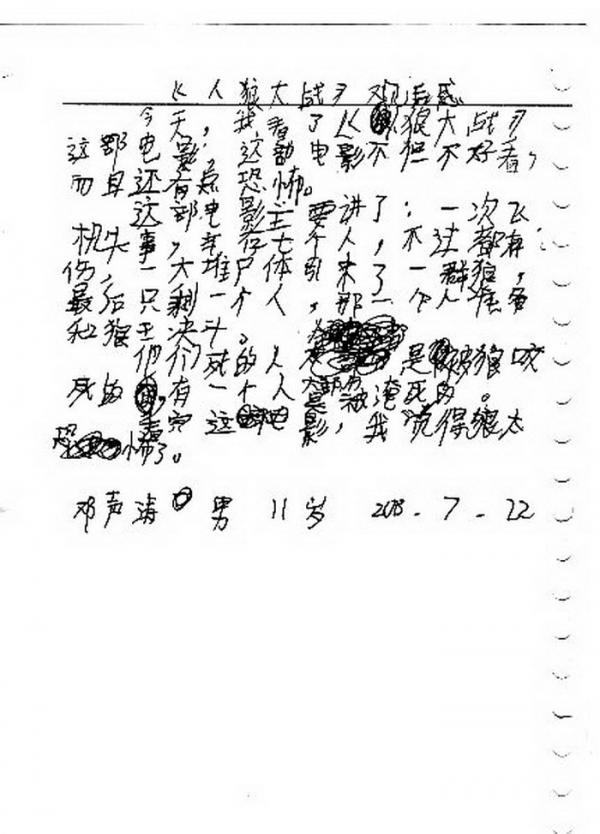 《人狼大战》观后感
今天，我看了《人狼大战》
这部电影，这部电影不但不好看，
而且还有点恐怖。
这部电影主要讲了：一次飞
机失事，幸存七个人，不过都有
伤，一大堆尸体引来了一群狼，
最后只剩个人，那一个人准备
和狼王决斗。
他们死的人 是被狼咬
死的，有一个人是被淹死的。
看完这电影，我觉得狼太
恐怖了。
邓声涛 男 11岁 2013.7.22